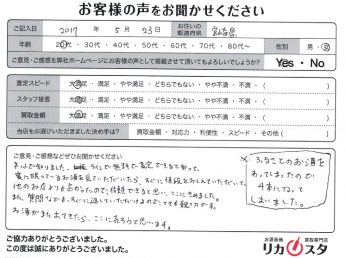 お客様の声をお聞かせください
ご記入日 2017 年 5 月 23 日 お住いの都道府県 宮崎県
年齢 20代・30代・40代・50代・60代・70代・80代〜 性別 男・女
ご意見・ご感想を弊社ホームページにお客様の声として掲載させて頂いてもよろしいでしょうか? Yes・No
査定スピード 大満足・満足・やや満足・どちらでもない・やや不満・不満・( )
スタッフ接客 大満足・満足・やや満足・どちらでもない・やや不満・不満・( )
買取金額 大満足・満足・やや満足・どちらでもない・やや不満・不満・( )
当店をお選びいただきました決め手は? 買取金額・対応力・利便性・スピード・その他( )
ご意見・ご感想などぜひお聞かせください
ネットで知りました。 ラインで無料で査定できると知って、
家に眠っているお酒を見ていただいたら、すぐに値段をおしえていただいて、
他のお店よりも高かったので、信頼できると思い、ここにきめました。
また、質問などでも、すぐに返していただけるのでとても頼りになります。
お酒がまた出てきたら、ここにたのもうと思います。
※ ふるさとのお酒を
わってしまったので
4本になって
しまいました。
ご協力ありがとうございました。
この度はありがとうございました。
お酒高価買取専門店
リカスタ